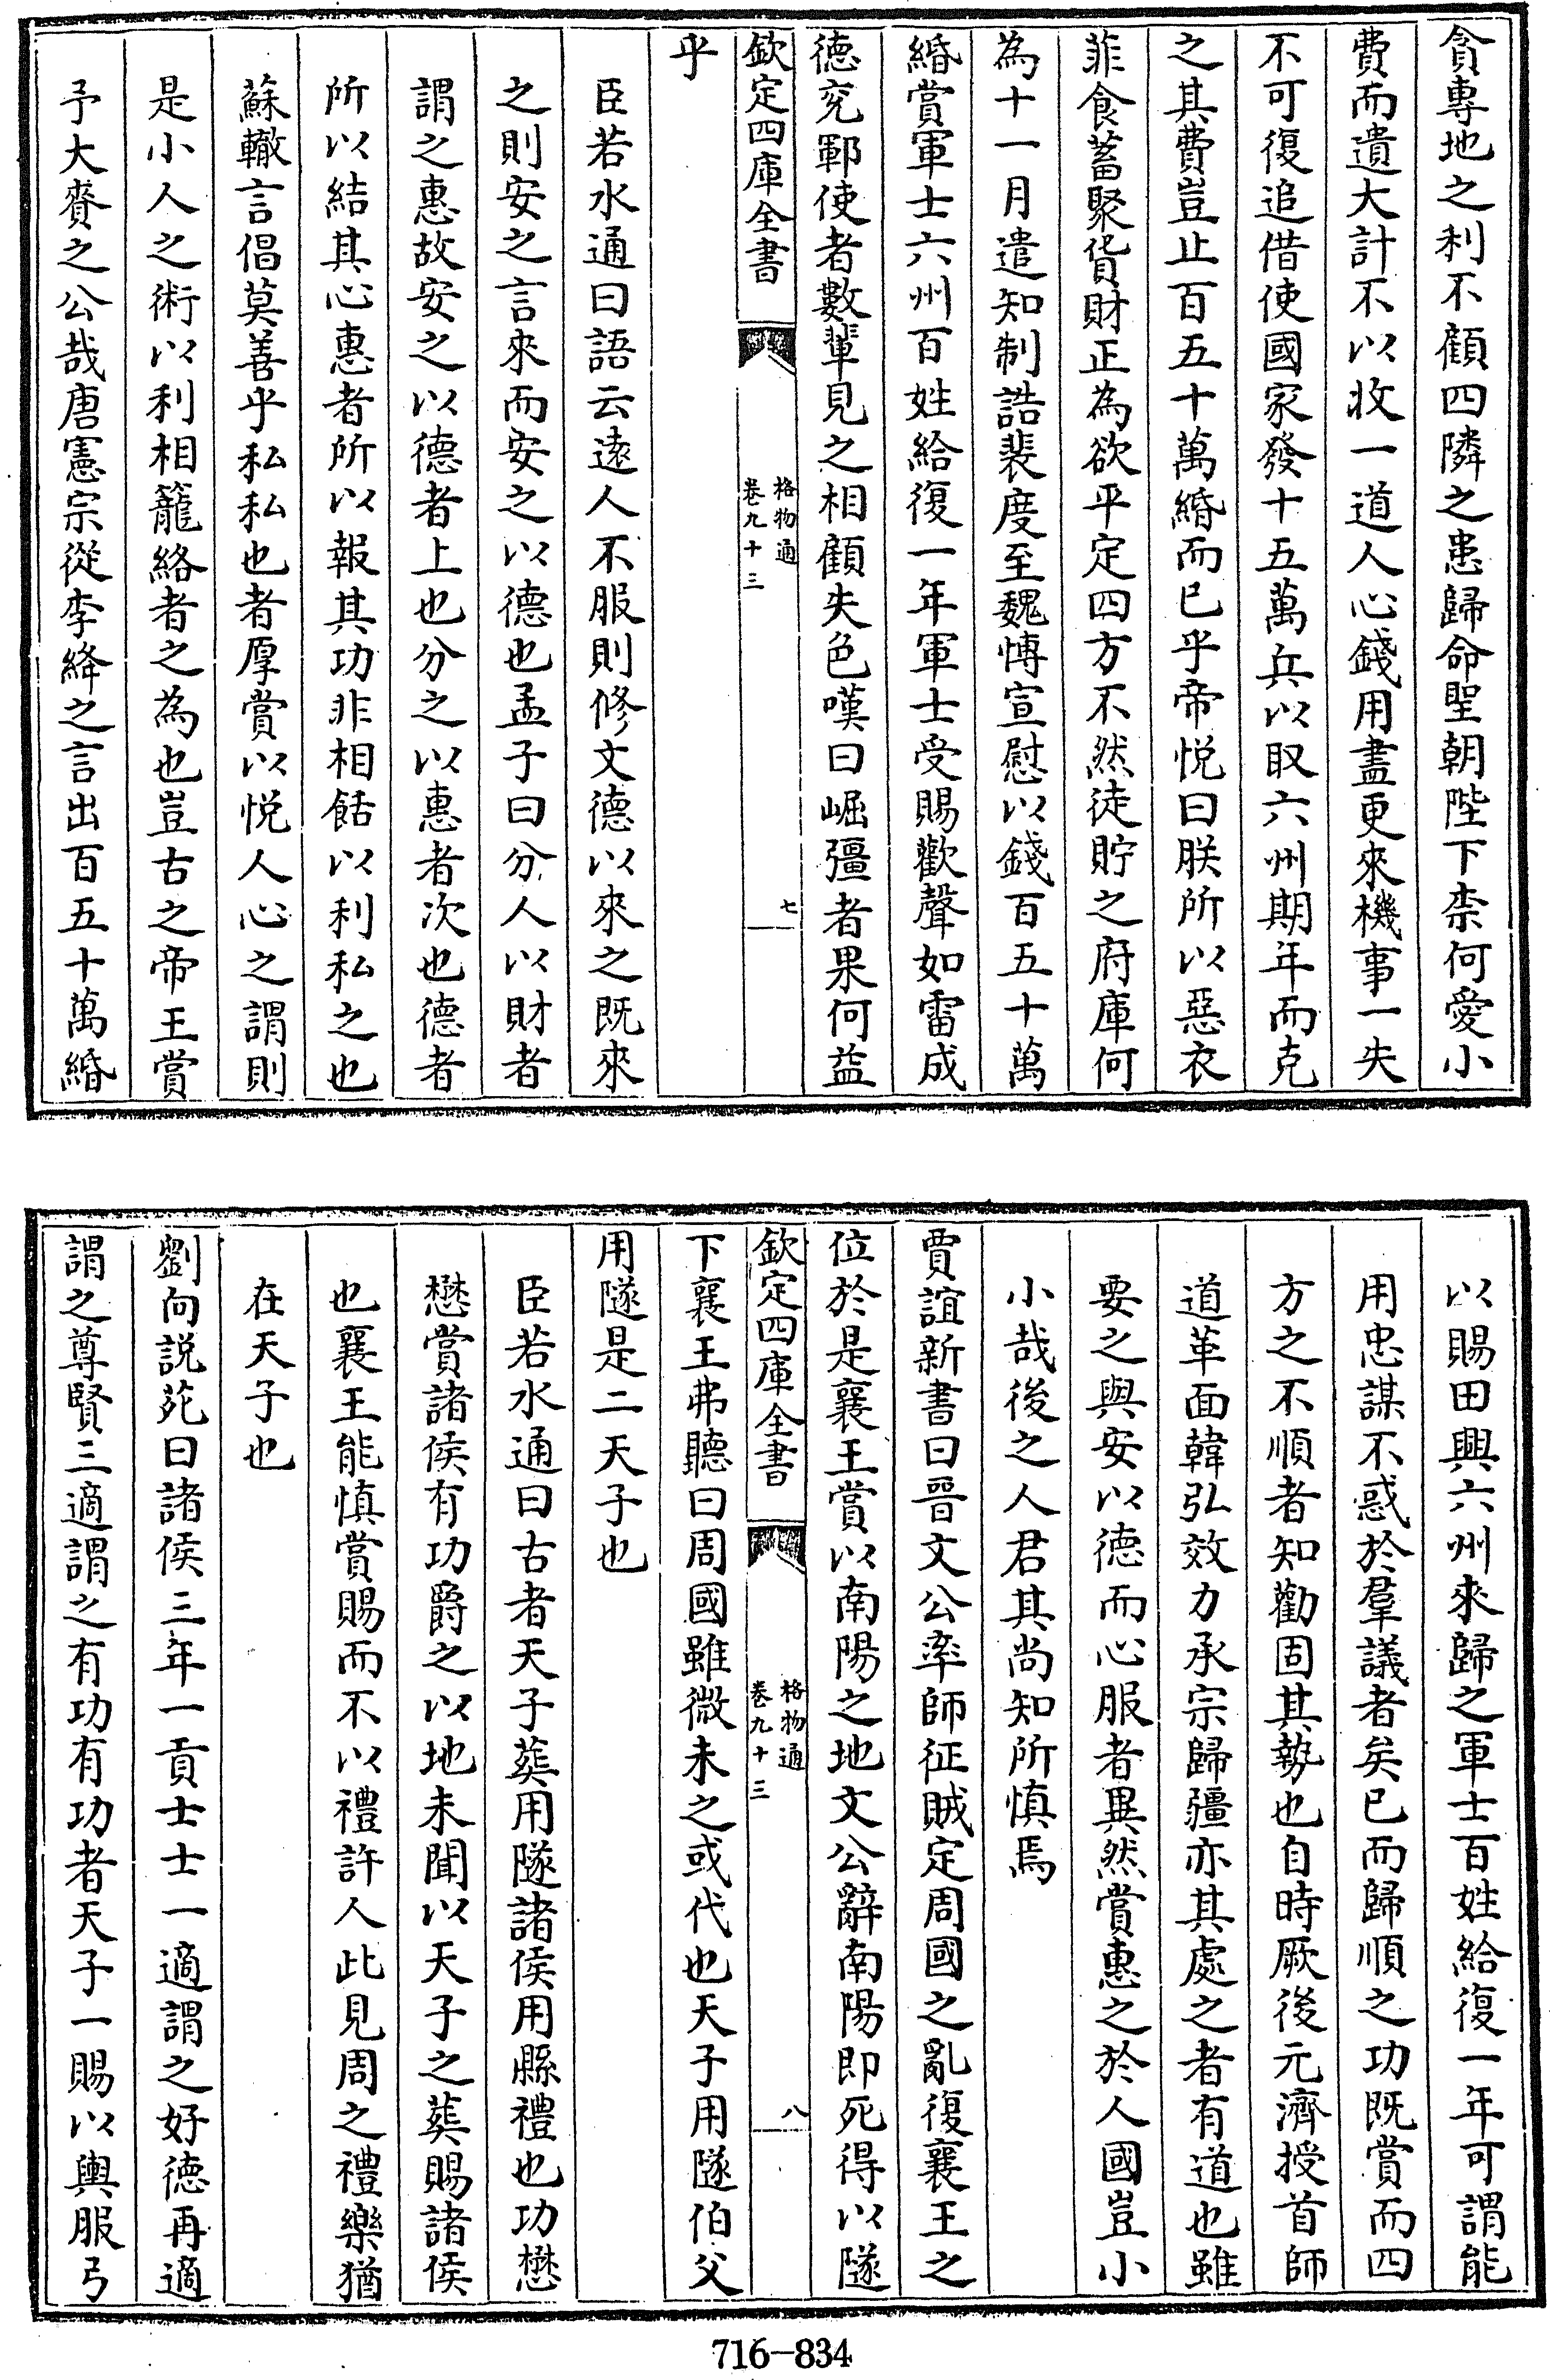 貪專地之利不顧四隣之患歸命聖朝陛下柰何愛小
費而遺大計不以收一道人心錢用盡更來機事一失
不可復追借使國家發十五萬兵以取六州期年而克
之其費豈止百五十萬緡而已乎帝悅曰朕所以惡衣
菲食蓄聚貨財正為欲平定四方不然徒貯之府庫何
為十一月遣知制誥裴度至魏慱宣慰以錢百五十萬
緡賞軍士六州百姓給復一年軍士受賜歡聲如雷成
德兗鄆使者數輩見之相顧失色嘆曰崛彊者果何益
欽定四庫全書
格物通
卷九十三
七
乎
臣若水通曰語云遠人不服則修文德以來之既來
之則安之言來而安之以德也孟子曰分人以財者
謂之惠故安之以德者上也分之以惠者次也德者
所以結其心惠者所以報其功非相餂以利私之也
蘇轍言倡莫善乎私私也者厚賞以悅人心之謂則
是小人之術以利相籠絡者之為也豈古之帝王賞
予大賚之公哉唐憲宗從李絳之言出百五十萬緡
以賜田興六州來歸之軍士百姓給復一年可謂能
用忠謀不惑於羣議者矣已而歸順之功既賞而四
方之不順者知勸固其勢也自時厥後元濟授首師
道革面韓弘效力承宗歸疆亦其處之者有道也雖
要之與安以德而心服者異然賞惠之於人國豈小
小哉後之人君其尚知所慎焉
賈誼新書曰晉文公率師征賊定周國之亂復襄王之
位於是襄王賞以南陽之地文公辭南陽即死得以隧
欽定四庫全書
格物通
卷九十三
八
下襄王弗聽曰周國雖微未之或代也天子用隧伯父
用隧是二天子也
臣若水通曰古者天子葬用隧諸侯用縣禮也功懋
懋賞諸侯有功爵之以地未聞以天子之葬賜諸侯
也襄王能慎賞賜而不以禮許人此見周之禮樂猶
在天子也
劉向說苑曰諸侯三年一貢士士一適謂之好德再適
謂之尊賢三適謂之有功有功者天子一賜以輿服弓
716-834